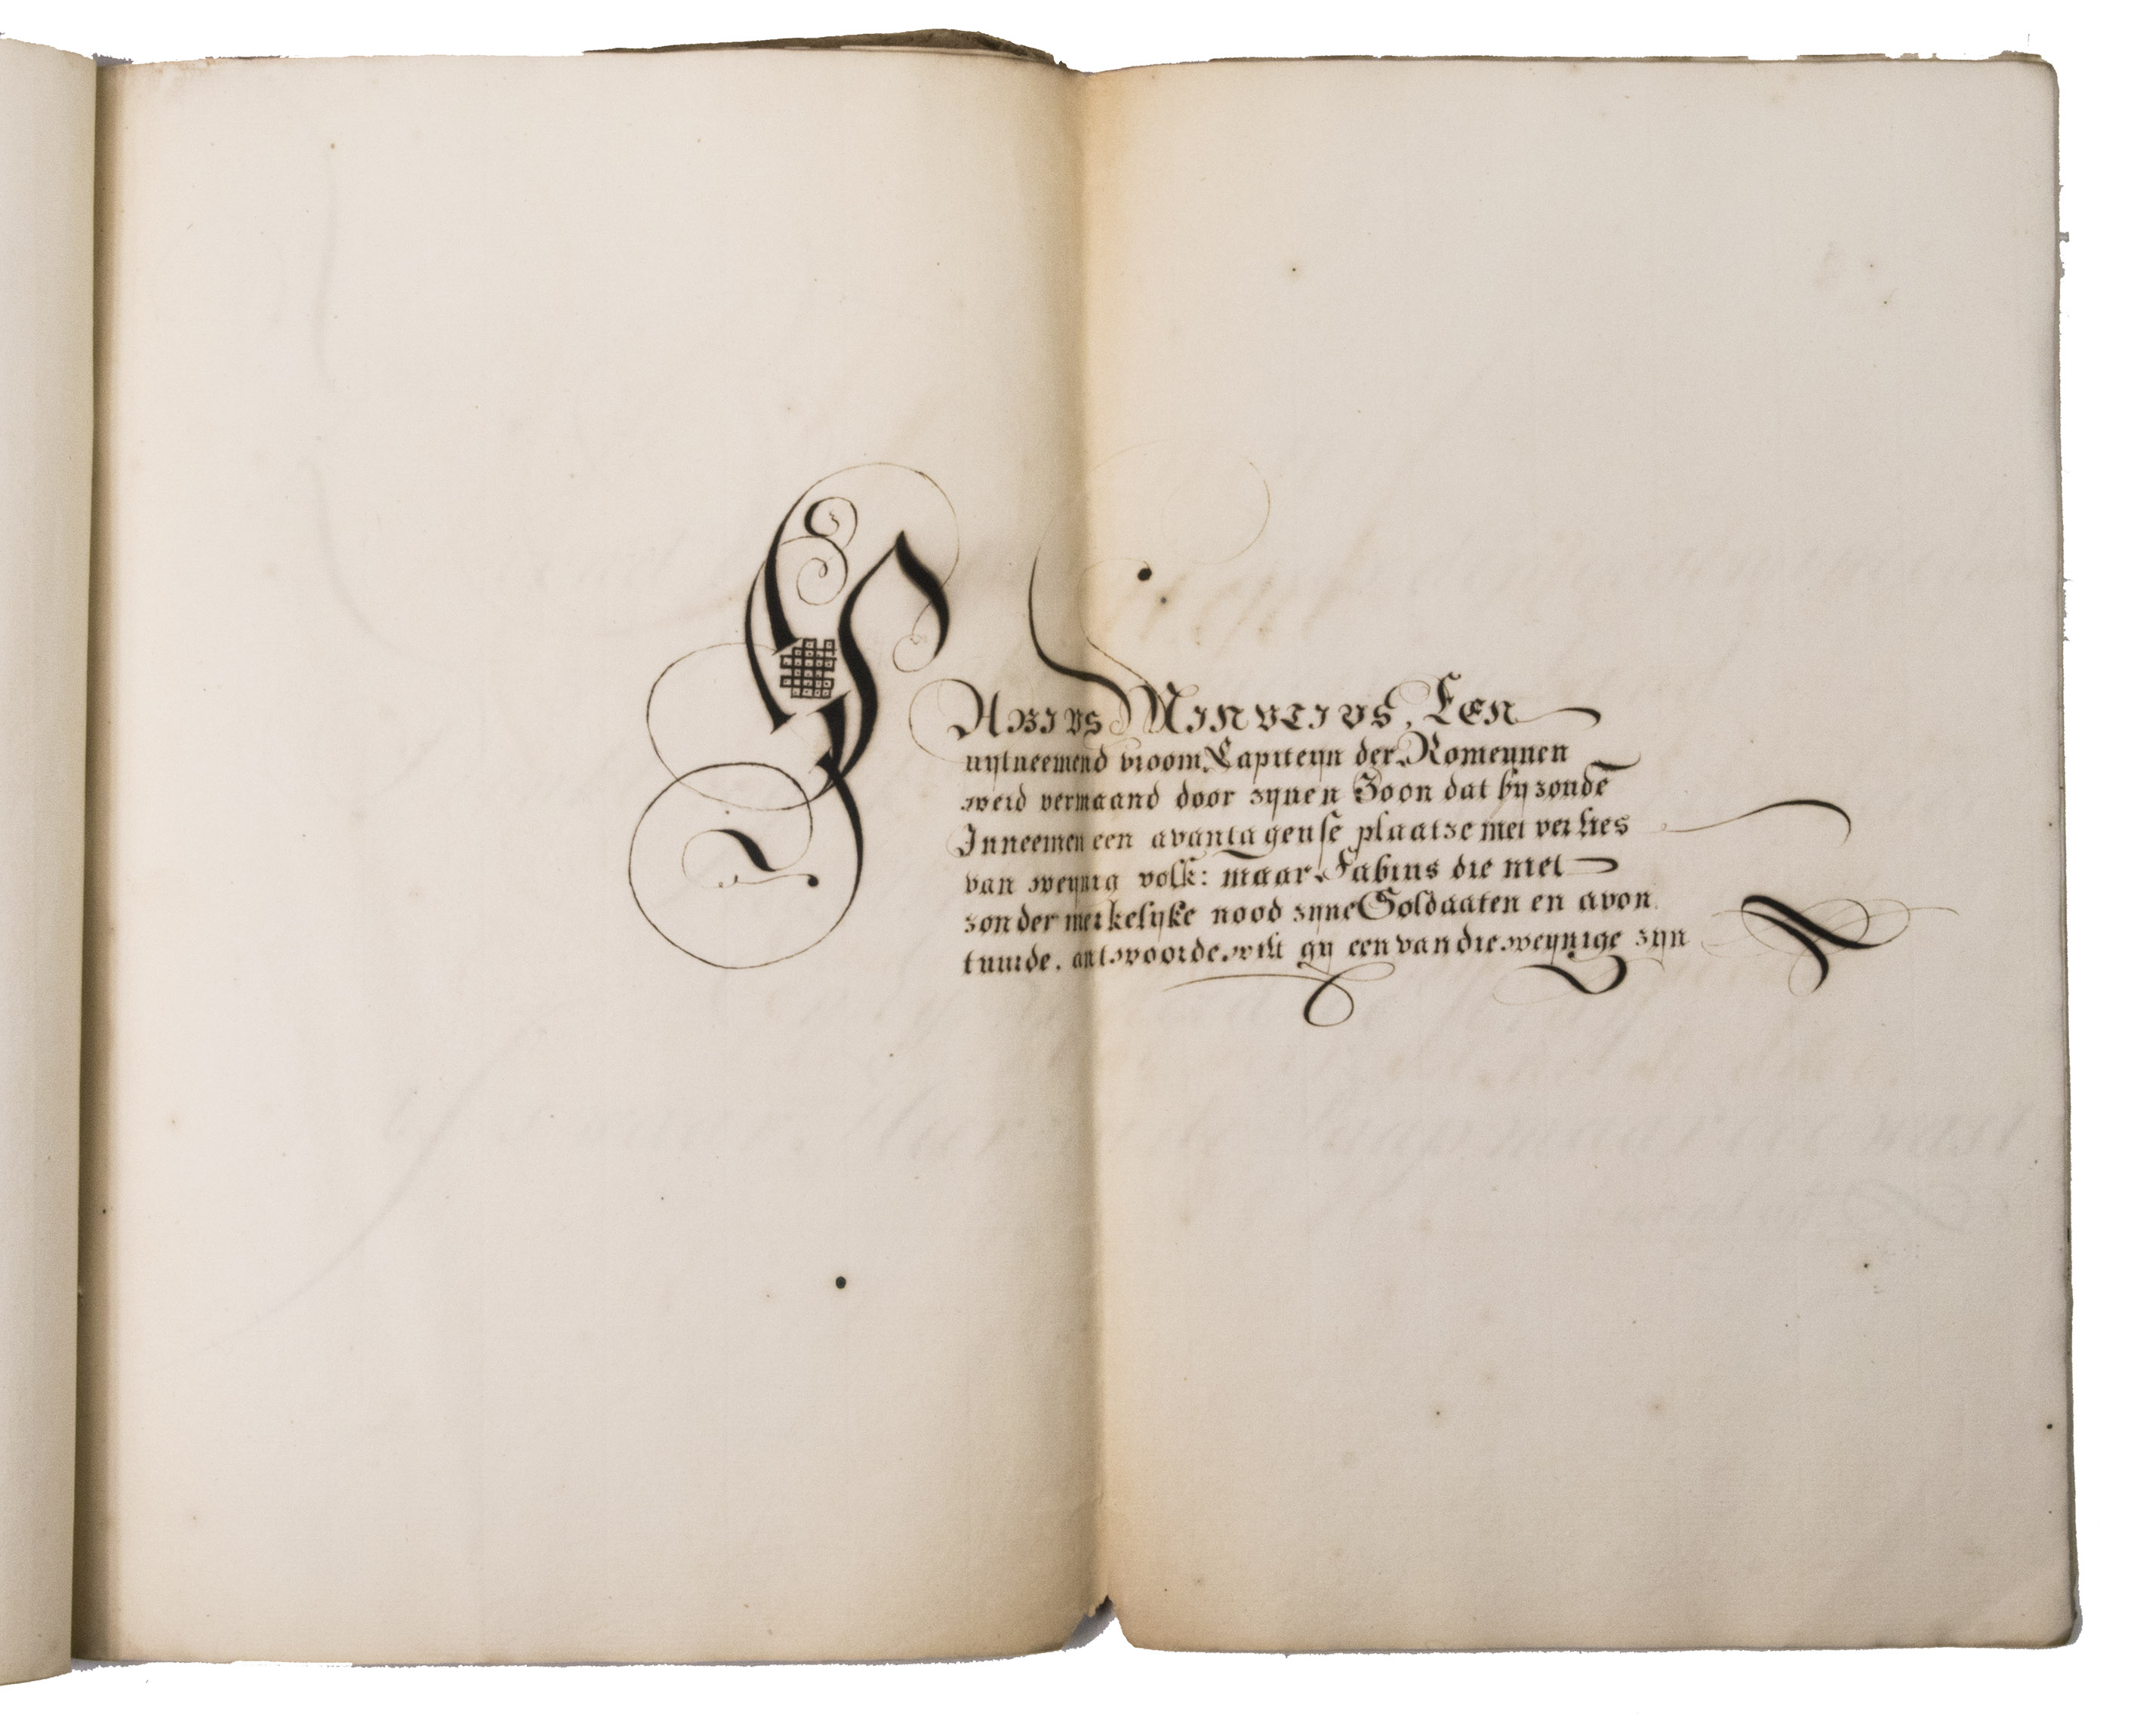 FABIVS MINVTIVS, EEN
uytneemend vroom Capiteyn der Romeynen
werd vermaand door zynen Zoon dat hy zonde
Inneemen een avantageuse plaatze met verlies
van weynig volk: maar Fabius die niet
zonder merkelyke nood zyne Soldaaten en avon
tuurde. antwoorde wilt gy een van die weynige zyn